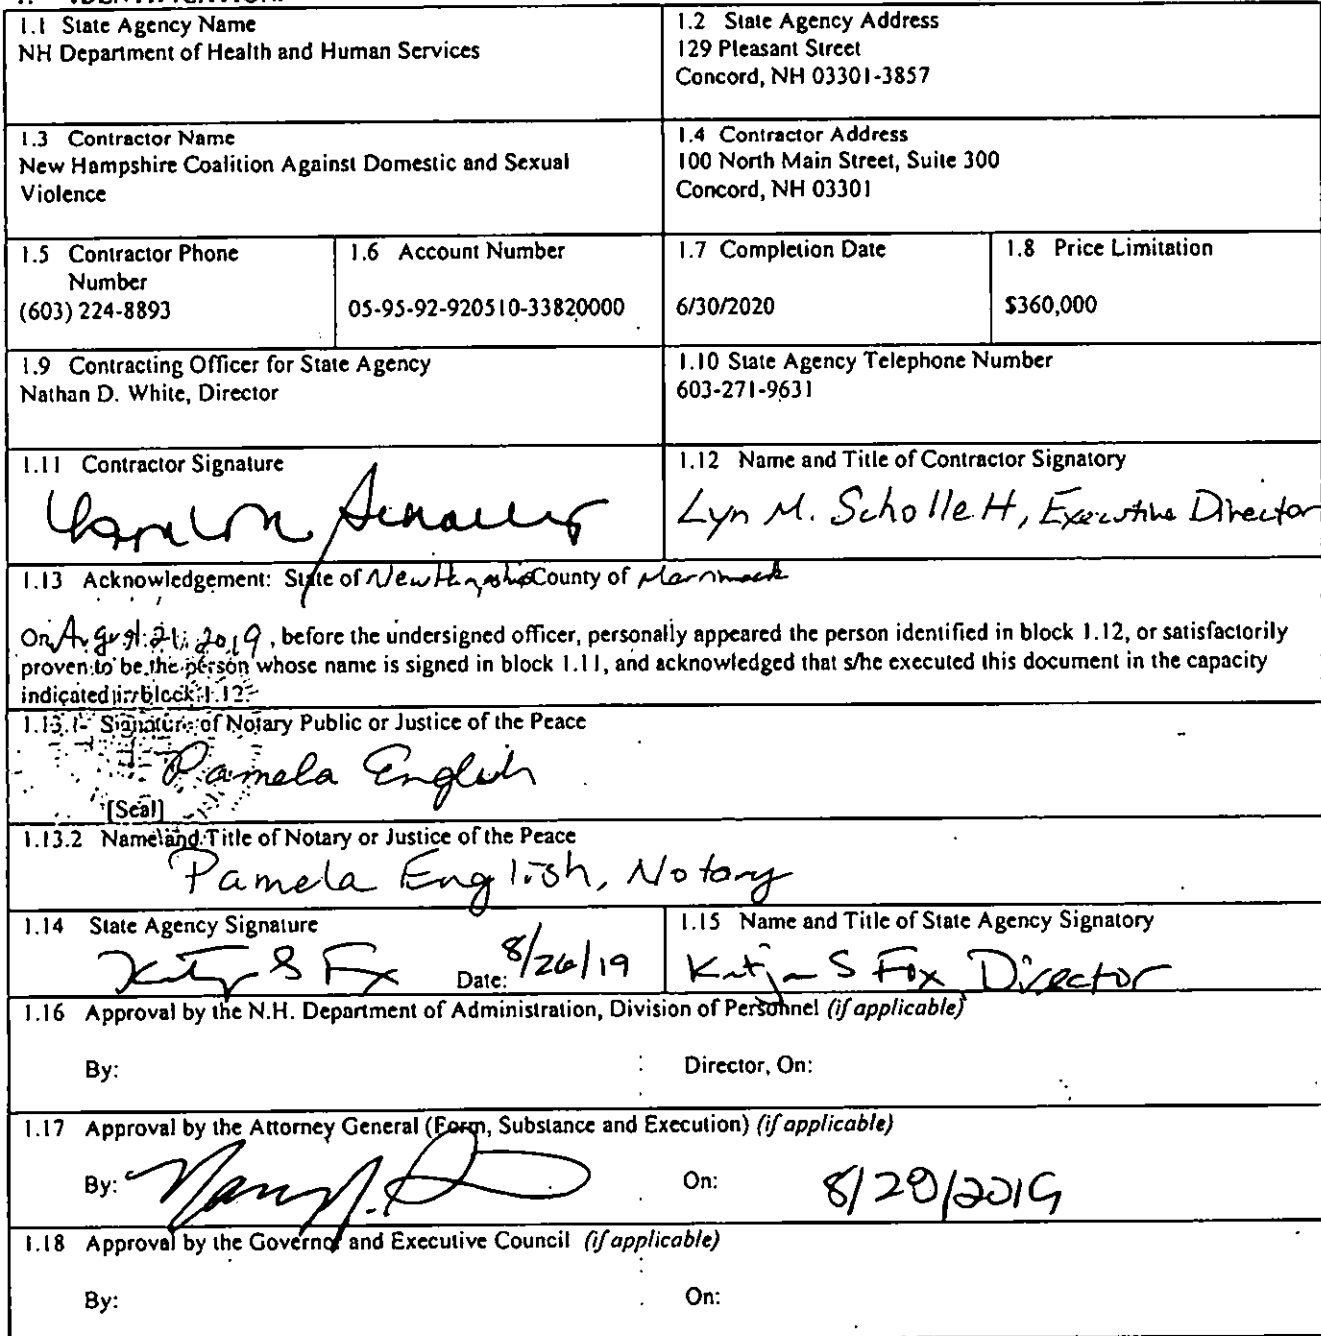 1.1 State Agency Name
NH Department of Health and Human Services
1.2 State Agency Address
129 Pleasant Street
Concord, NH 03301-3857
1.3 Contractor Name
New Hampshire Coalition Against Domestic and Sexual
Violence
1.4 Contractor Address
100 North Main Street, Suite 300
Concord, NH 03301
1.5 Contractor Phone
Number
(603) 224-8893
1.6 Account Number
05-95-92-920510-33820000
1.7 Completion Date
6/30/2020
1.8 Price Limitation
$360,000
1.9 Contracting Officer for State Agency
Nathan D. White, Director
1.10 State Agency Telephone Number
603-271-9631
1.11 Contractor Signature
1.12 Name and Title of Contractor Signatory
Lyn M. Schollett, Executive Director
1.13 Acknowledgement: State of New Hampshire County of Merrimack
On August 21, 2019, before the undersigned officer, personally appeared the person identified in block 1.12, or satisfactorily
proven to be the person whose name is signed in block 1.11, and acknowledged that s/he executed this document in the capacity
indicated in block 1.12.
1.13.1 Signature of Notary Public or Justice of the Peace
Pamela English
[Seal]
1.13.2 Name and Title of Notary or Justice of the Peace
Pamela English, Notary
1.14 State Agency Signature
Date: 8/26/19
1.15 Name and Title of State Agency Signatory
S Fox Director
1.16 Approval by the N.H. Department of Administration, Division of Personnel (if applicable)
By:
Director, On:
1.17 Approval by the Attorney General (Form, Substance and Execution) (if applicable)
By:
On:
1.18 Approval by the Governor and Executive Council (if applicable)
By:
On: